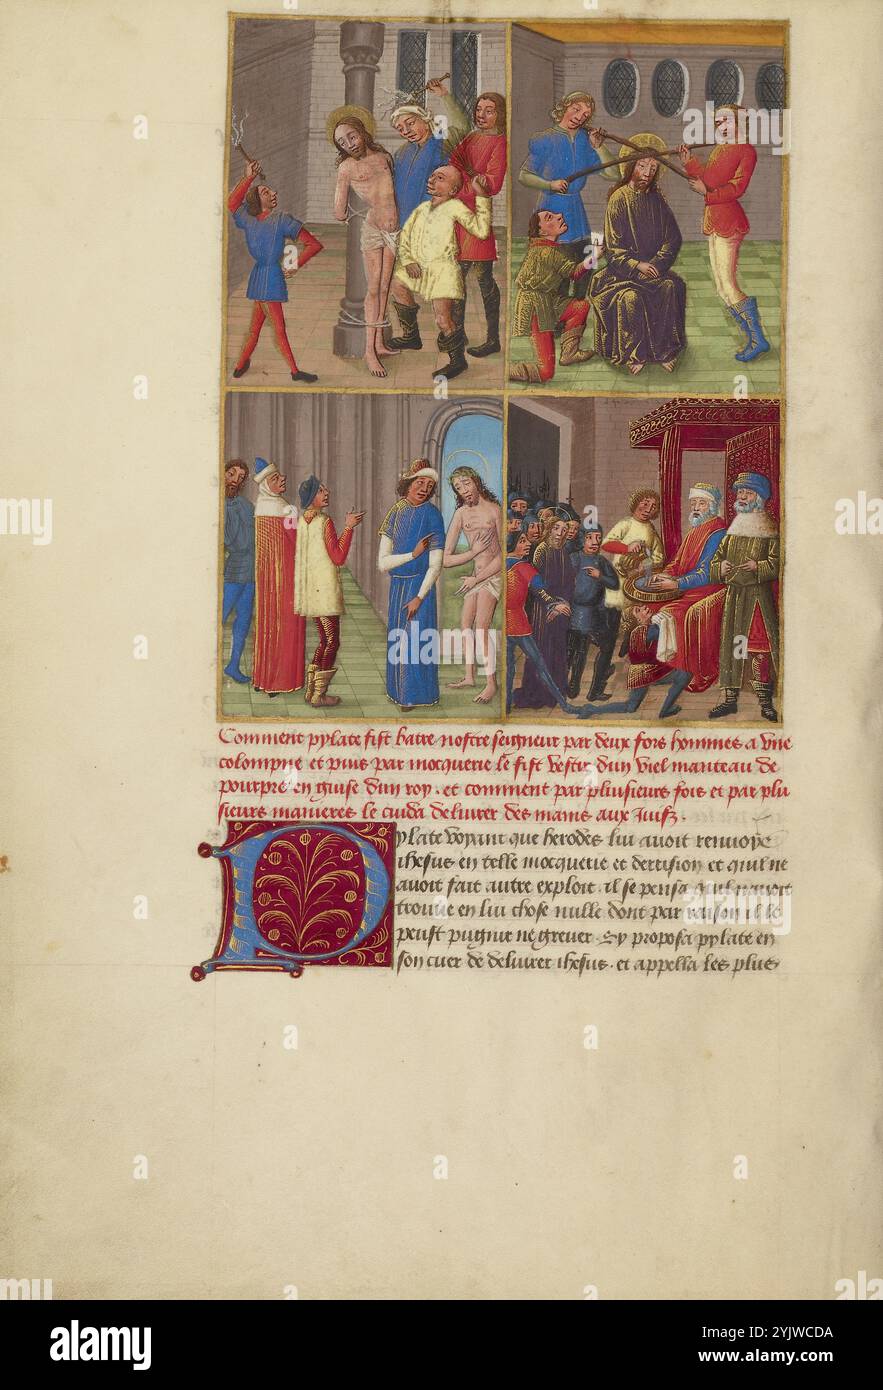 Comment pylate fist batre nostre seigneur par deux fors hommes a vne
colompne et puis par mocquerie le fist vestir dun viel manteau de
pourpre en guise dun roy. et comment par pluisieurs fois et par plu
sieurs manieres le cuida deliurer des mains aux Juifz.
Pylate voyant que herodes lui auoit renuoye
ihesus en telle mocquerie et derrision et quil ne
auoit fait autre exploit. il se pensa quil nauoit
trouue en lui chose nulle dont par raison il le
peust pugnir ne greuer. Sy proposa pylate en
son cuer de deliurer ihesus. et appella les plus
alamy
Image ID: 2YJWCDA
www.alamy.com